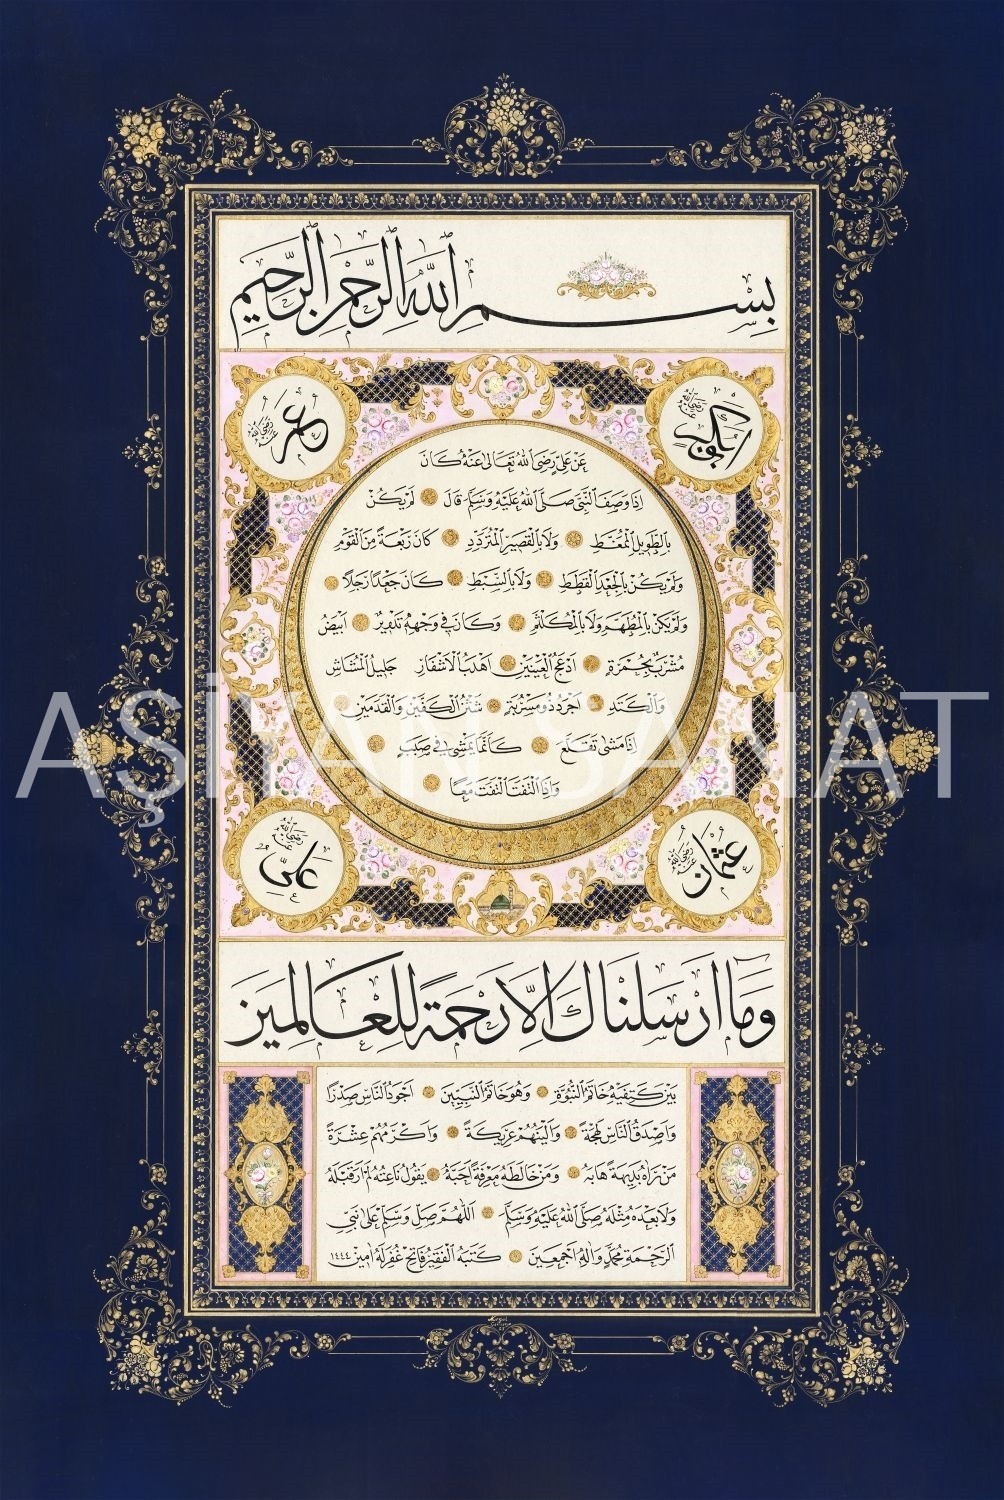 بِسْمِ اللهِ الرَّحْمٰنِ الرَّحِيمِ
ابوبكر رضي الله عنه
عمر رضي الله عنه
عَنْ عَلِيٍّ رَضِيَ اللهُ تَعَالَى عَنْهُ كَانَ
اِذَا وَصَفَ النَّبِيَّ صَلَّى اللهُ عَلَيْهِ وَسَلَّمَ قَالَ لَمْ يَكُنْ
بِالطَّوِيلِ الْمُمَّغِطِ وَلَا بِالْقَصِيرِ الْمُتَرَدِّدِ كَانَ رَبْعَةً مِنَ الْقَوْمِ
وَلَمْ يَكُنْ بِالْجَعْدِ الْقَطَطِ وَلَا بِالسَّبْطِ كَانَ جَعْدًا رَجِلًا
وَلَمْ يَكُنْ بِالْمُطَهَّمِ وَلَا بِالْمُكَلْثَمِ وَكَانَ فِي وَجْهِهِ تَدْوِيرٌ اَبْيَضُ
مُشْرَبٌ بِحُمْرَةٍ اَدْعَجُ الْعَيْنَيْنِ اَهْدَبُ الْاَشْفَارِ جَلِيلُ الْمُشَاشِ
وَالْكَتَدِ اَجْرَدُ ذُو مَسْرُبَةٍ شَثْنُ الْكَفَّيْنِ وَالْقَدَمَيْنِ
اِذَا مَشَى تَقَلَّعَ كَاَنَّمَا يَمْشِي فِي صَبَبٍ
وَاِذَا الْتَفَتَ الْتَفَتَ مَعًا
عثمان رضي الله عنه
علي رضي الله عنه
وَمَا اَرْسَلْنَاكَ اِلَّا رَحْمَةً لِلْعَالَمِينَ
بَيْنَ كَتِفَيْهِ خَاتَمُ النُّبُوَّةِ وَهُوَ خَاتَمُ النَّبِيِّينَ اَجْوَدُ النَّاسِ صَدْرًا
وَاَصْدَقُ النَّاسِ لَهْجَةً وَاَلْيَنُهُمْ عَرِيكَةً وَاَكْرَمُهُمْ عِشْرَةً
مَنْ رَاٰهُ بَدِيهَةً هَابَهُ وَمَنْ خَالَطَهُ مَعْرِفَةً اَحَبَّهُ يَقُولُ نَاعِتُهُ لَمْ اَرَ قَبْلَهُ
وَلَا بَعْدَهُ مِثْلَهُ صَلَّى اللهُ عَلَيْهِ وَسَلَّمَ اَللّٰهُمَّ صَلِّ وَسَلِّمْ عَلَى نَبِيِّ
الرَّحْمَةِ مُحَمَّدٍ وَاٰلِهِ اَجْمَعِينَ كَتَبَهُ الْفَقِيرُ فَاتِحْ غُفِرَ لَهُ اٰمِينْ ١٤٤٤
AŞİYAN SANAT